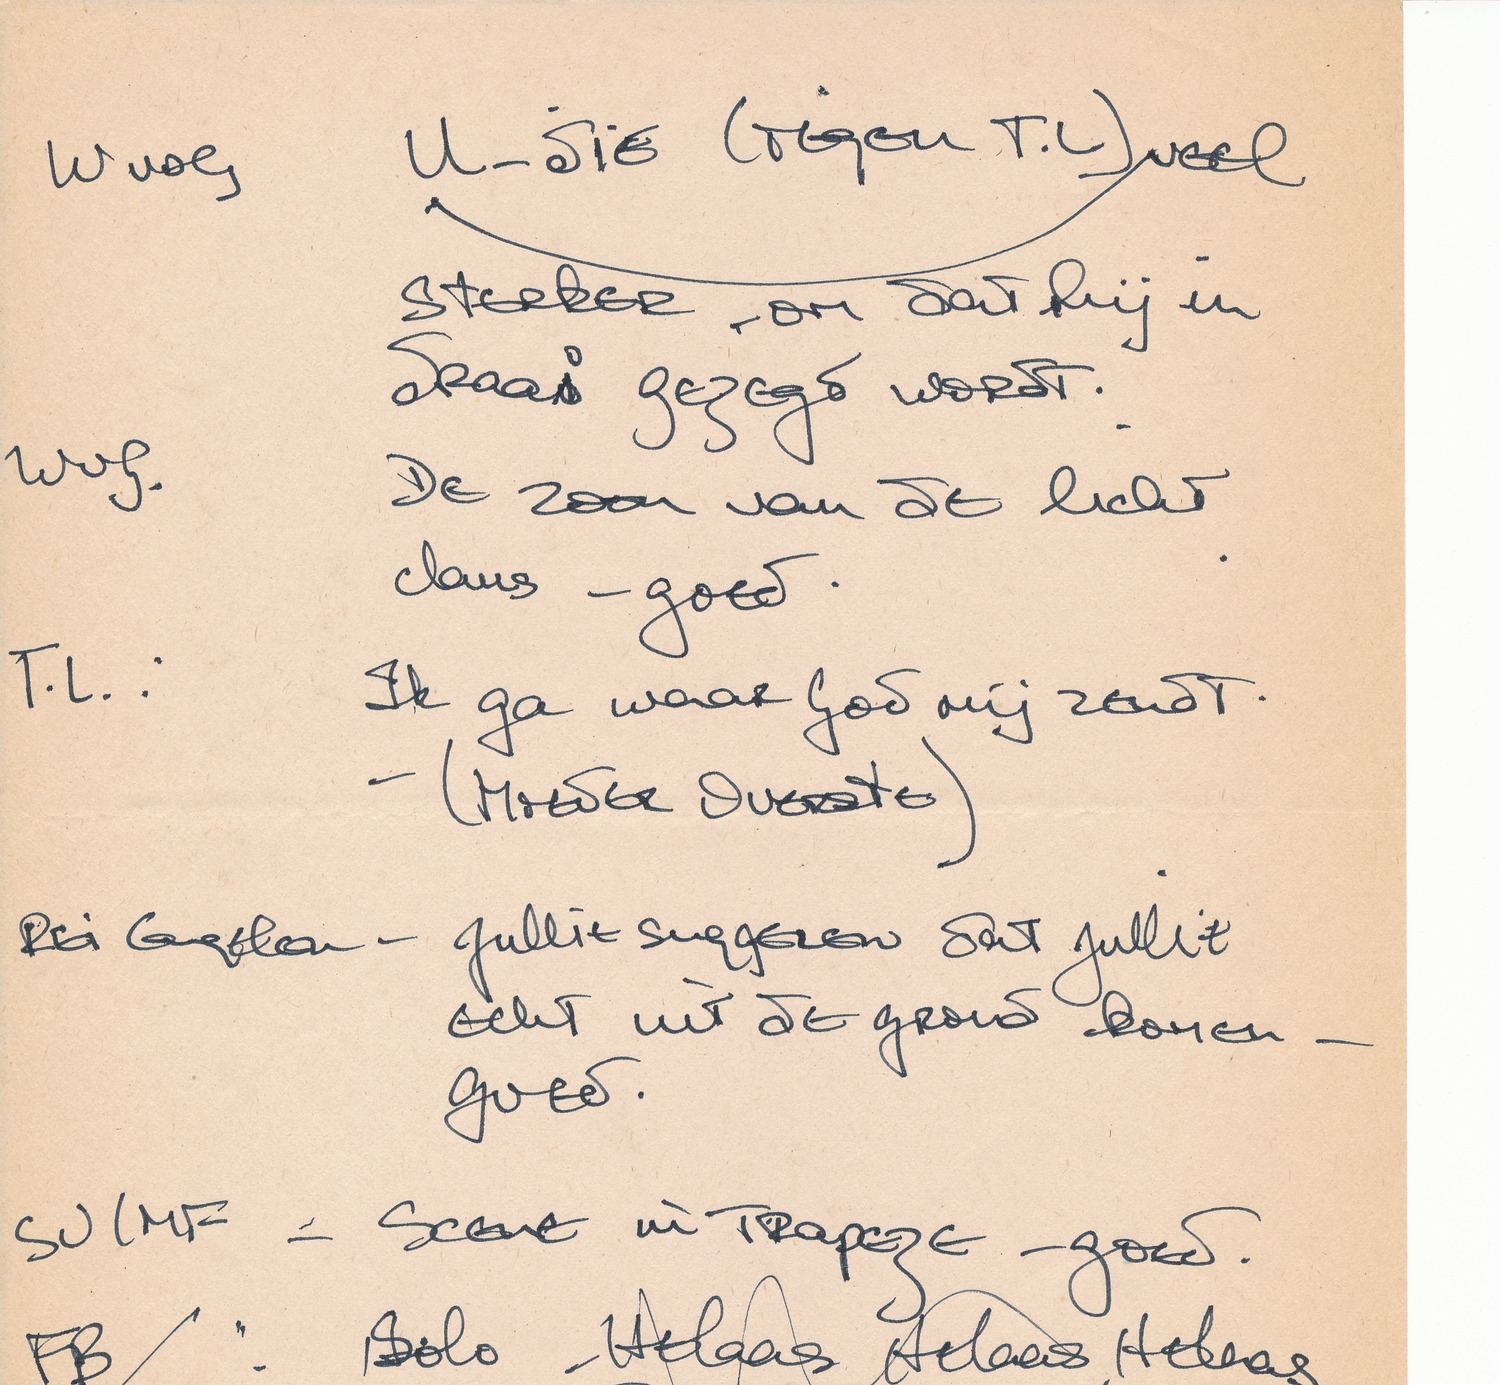 W vog U - die (tegen T.L) veel
sterker, om dat hij in
draai gezegd wordt.
WvG. De zoon van de licht
claus - goed.
T.L. : Ik ga waar God mij zendt.
- (Moeder Overste)
Rei Engelen - jullie suggereren dat jullie
echt uit de grond komen -
goed.
SV/MF - Scene in Trapeze - goed.
FB / " : Solo - Helaas Helaas, Helaas